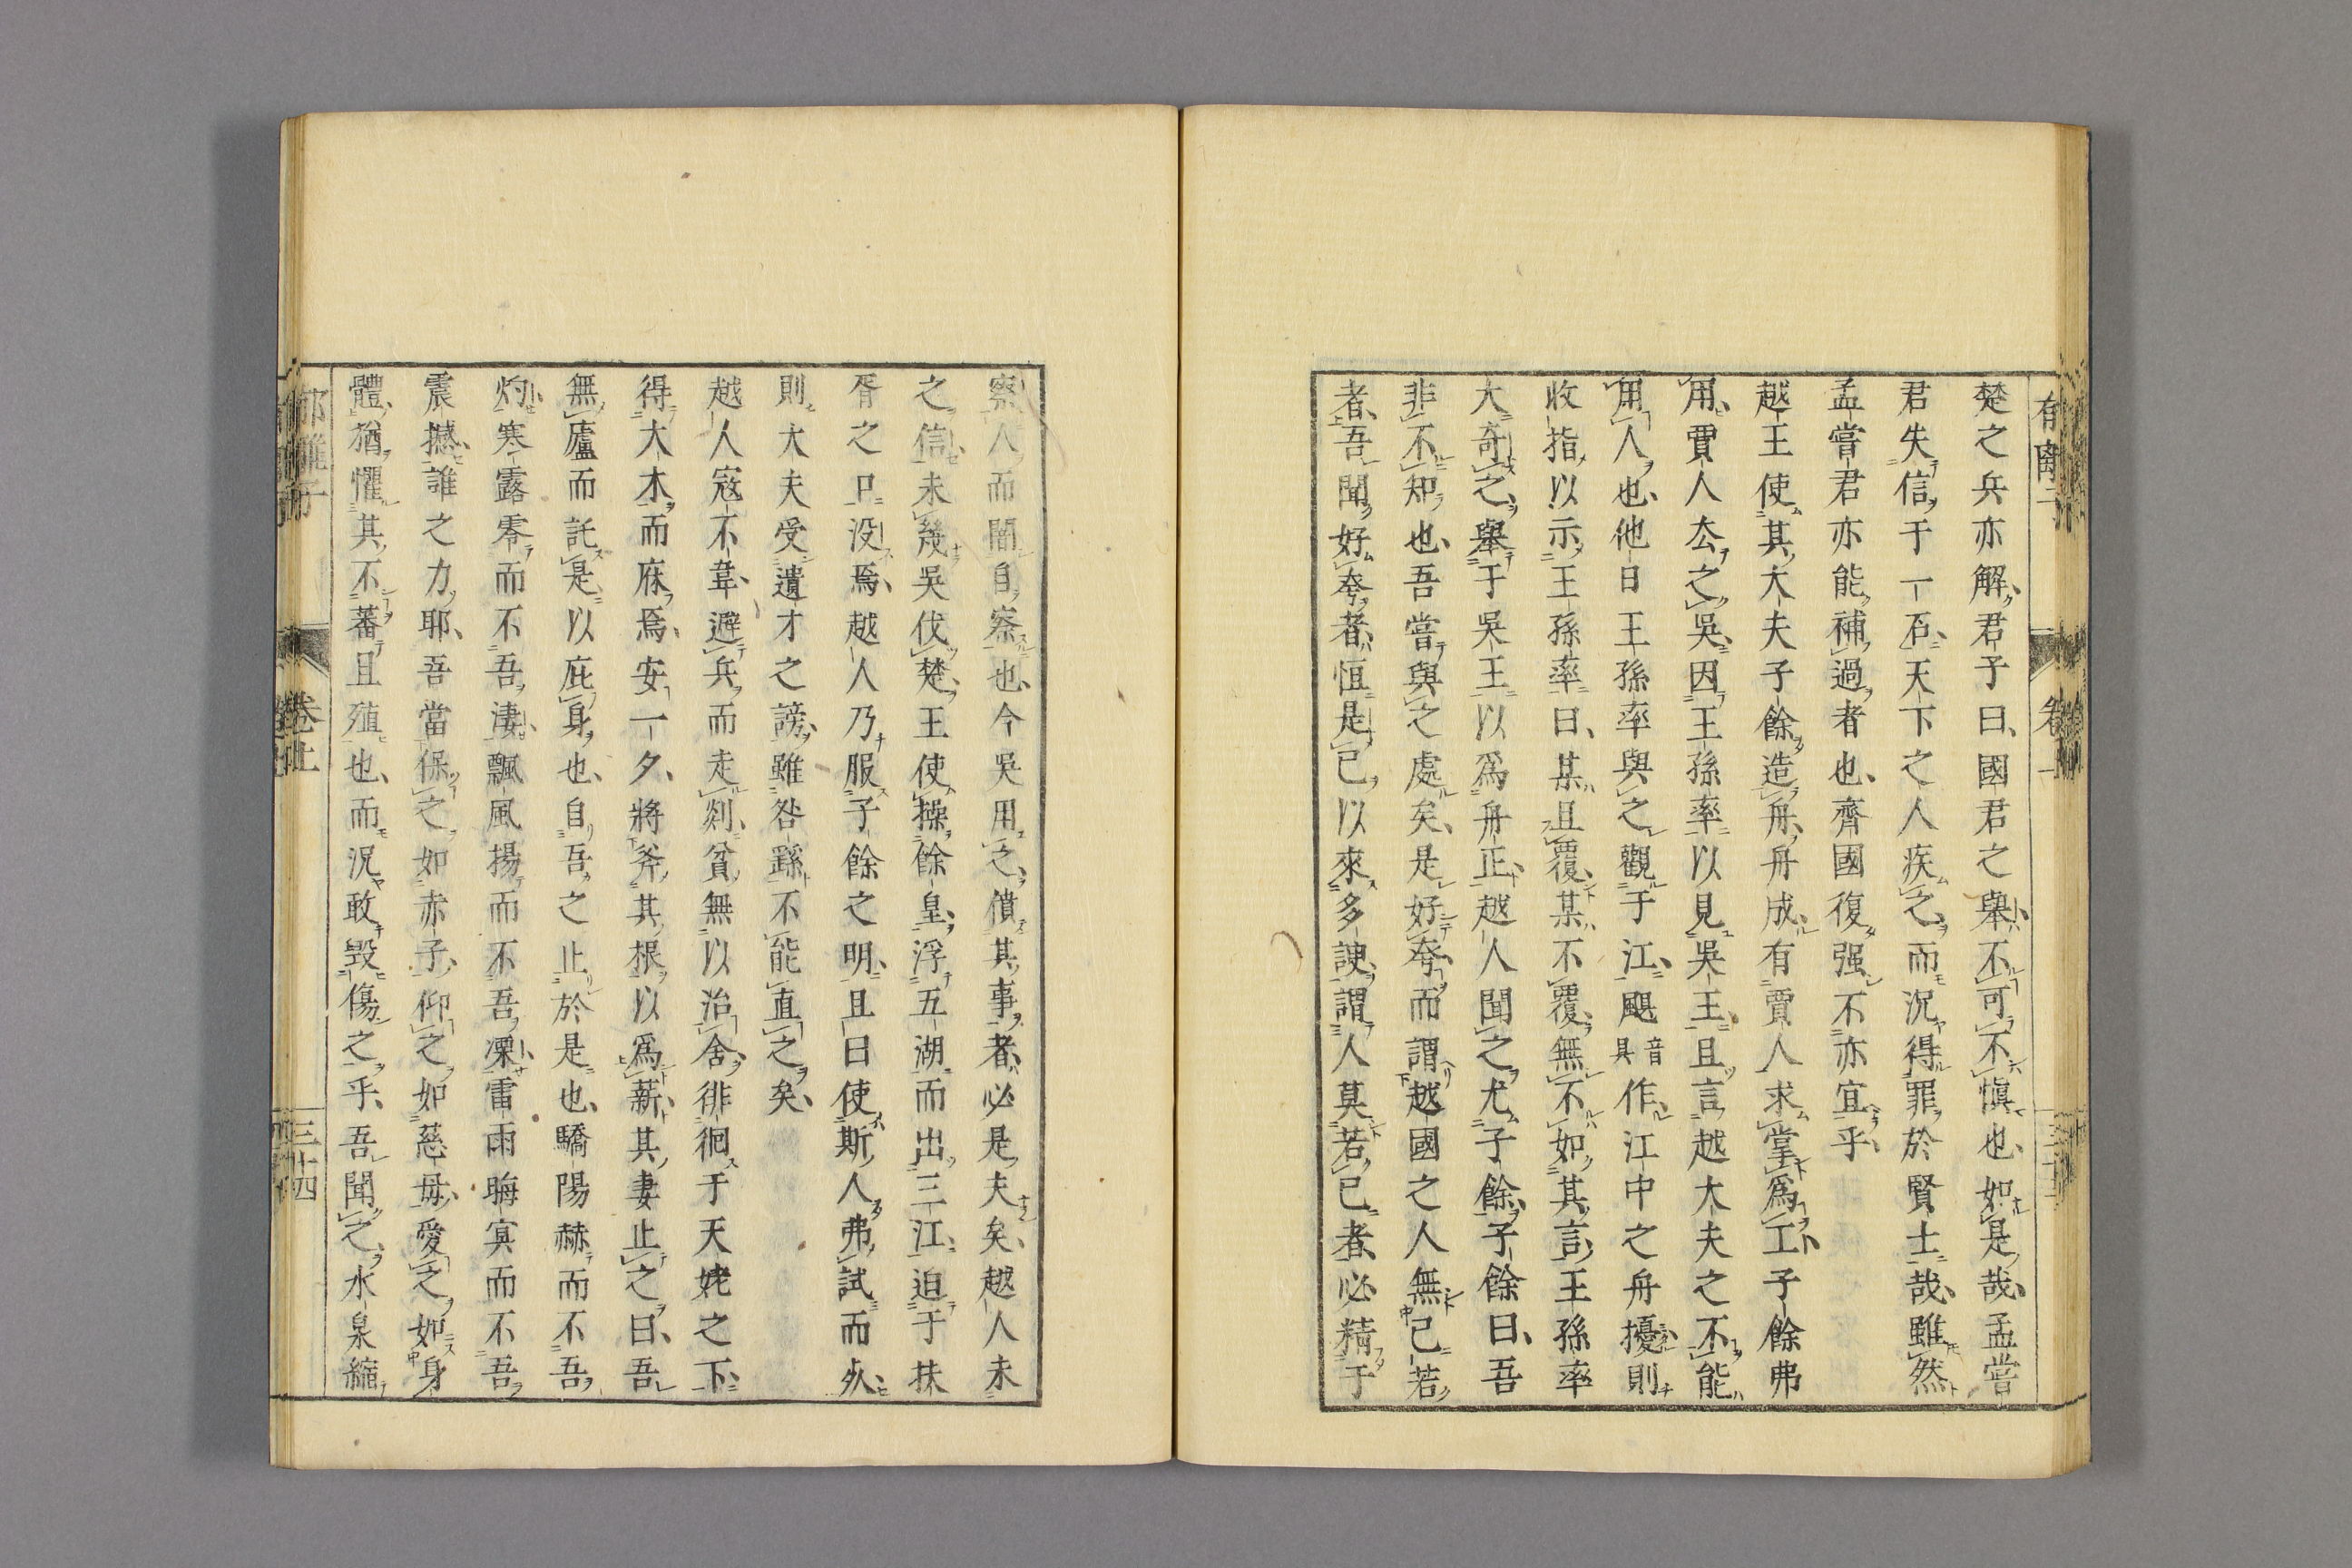 楚之兵亦解、君子曰、國君之擧、不可不愼也、如是哉、孟嘗
君失信于一石、天下之人疾之、而況得罪於賢士哉、雖然
孟嘗君亦能補過者也、齊國復强、不亦宜乎、
越王使其大夫子餘造舟、舟成、有賈人求掌爲工、子餘弗
用、賈人厺之吳、因王孫率以見吳王、且言越大夫之不能
用人也、他日王孫率與之觀于江、颶音具作、江中之舟擾、則
收指以示王孫率曰、某且覆、某不覆、無不如其言、王孫率
大奇之、擧于吳王以爲舟正、越人聞之、尤子餘、子餘曰、吾
非不知也、吾嘗與之處矣、是好夸、而謂越國之人無己若
者、吾聞好夸者、恒是己、以來多諛、謂人莫若己者、必精于
察人而闇自察也、今吳用之、僨其事者、必是夫矣、越人未
之信、未幾吳伐楚、王使操餘皇、浮五湖而出三江、迫于扶
胥之口没焉、越人乃服子餘之明、且曰使斯人弗試而死、
則大夫受遺才之謗、雖咎繇不能直之矣、
越人寇不韋、避兵而走剡、貧無以治舍、徘徊于天姥之下、
得大木而庥焉、安一夕、將斧其根以爲薪、其妻止之曰、吾
無廬而託是以庇身也、自吾之止於是也、驕陽赫而不吾
灼、寒露零而不吾淒、飄風揚而不吾凓、雷雨晦冥而不吾
震撼、誰之力耶、吾當保之如赤子、仰之如慈母、愛之如身
體、猶懼其不蕃且殖也、而況敢毁傷之乎、吾聞之、水泉縮
郁離子
卷上
三十四